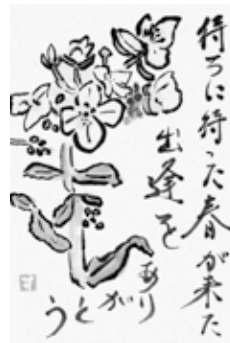 待ちに待った春が来た
出逢を
ありがとう